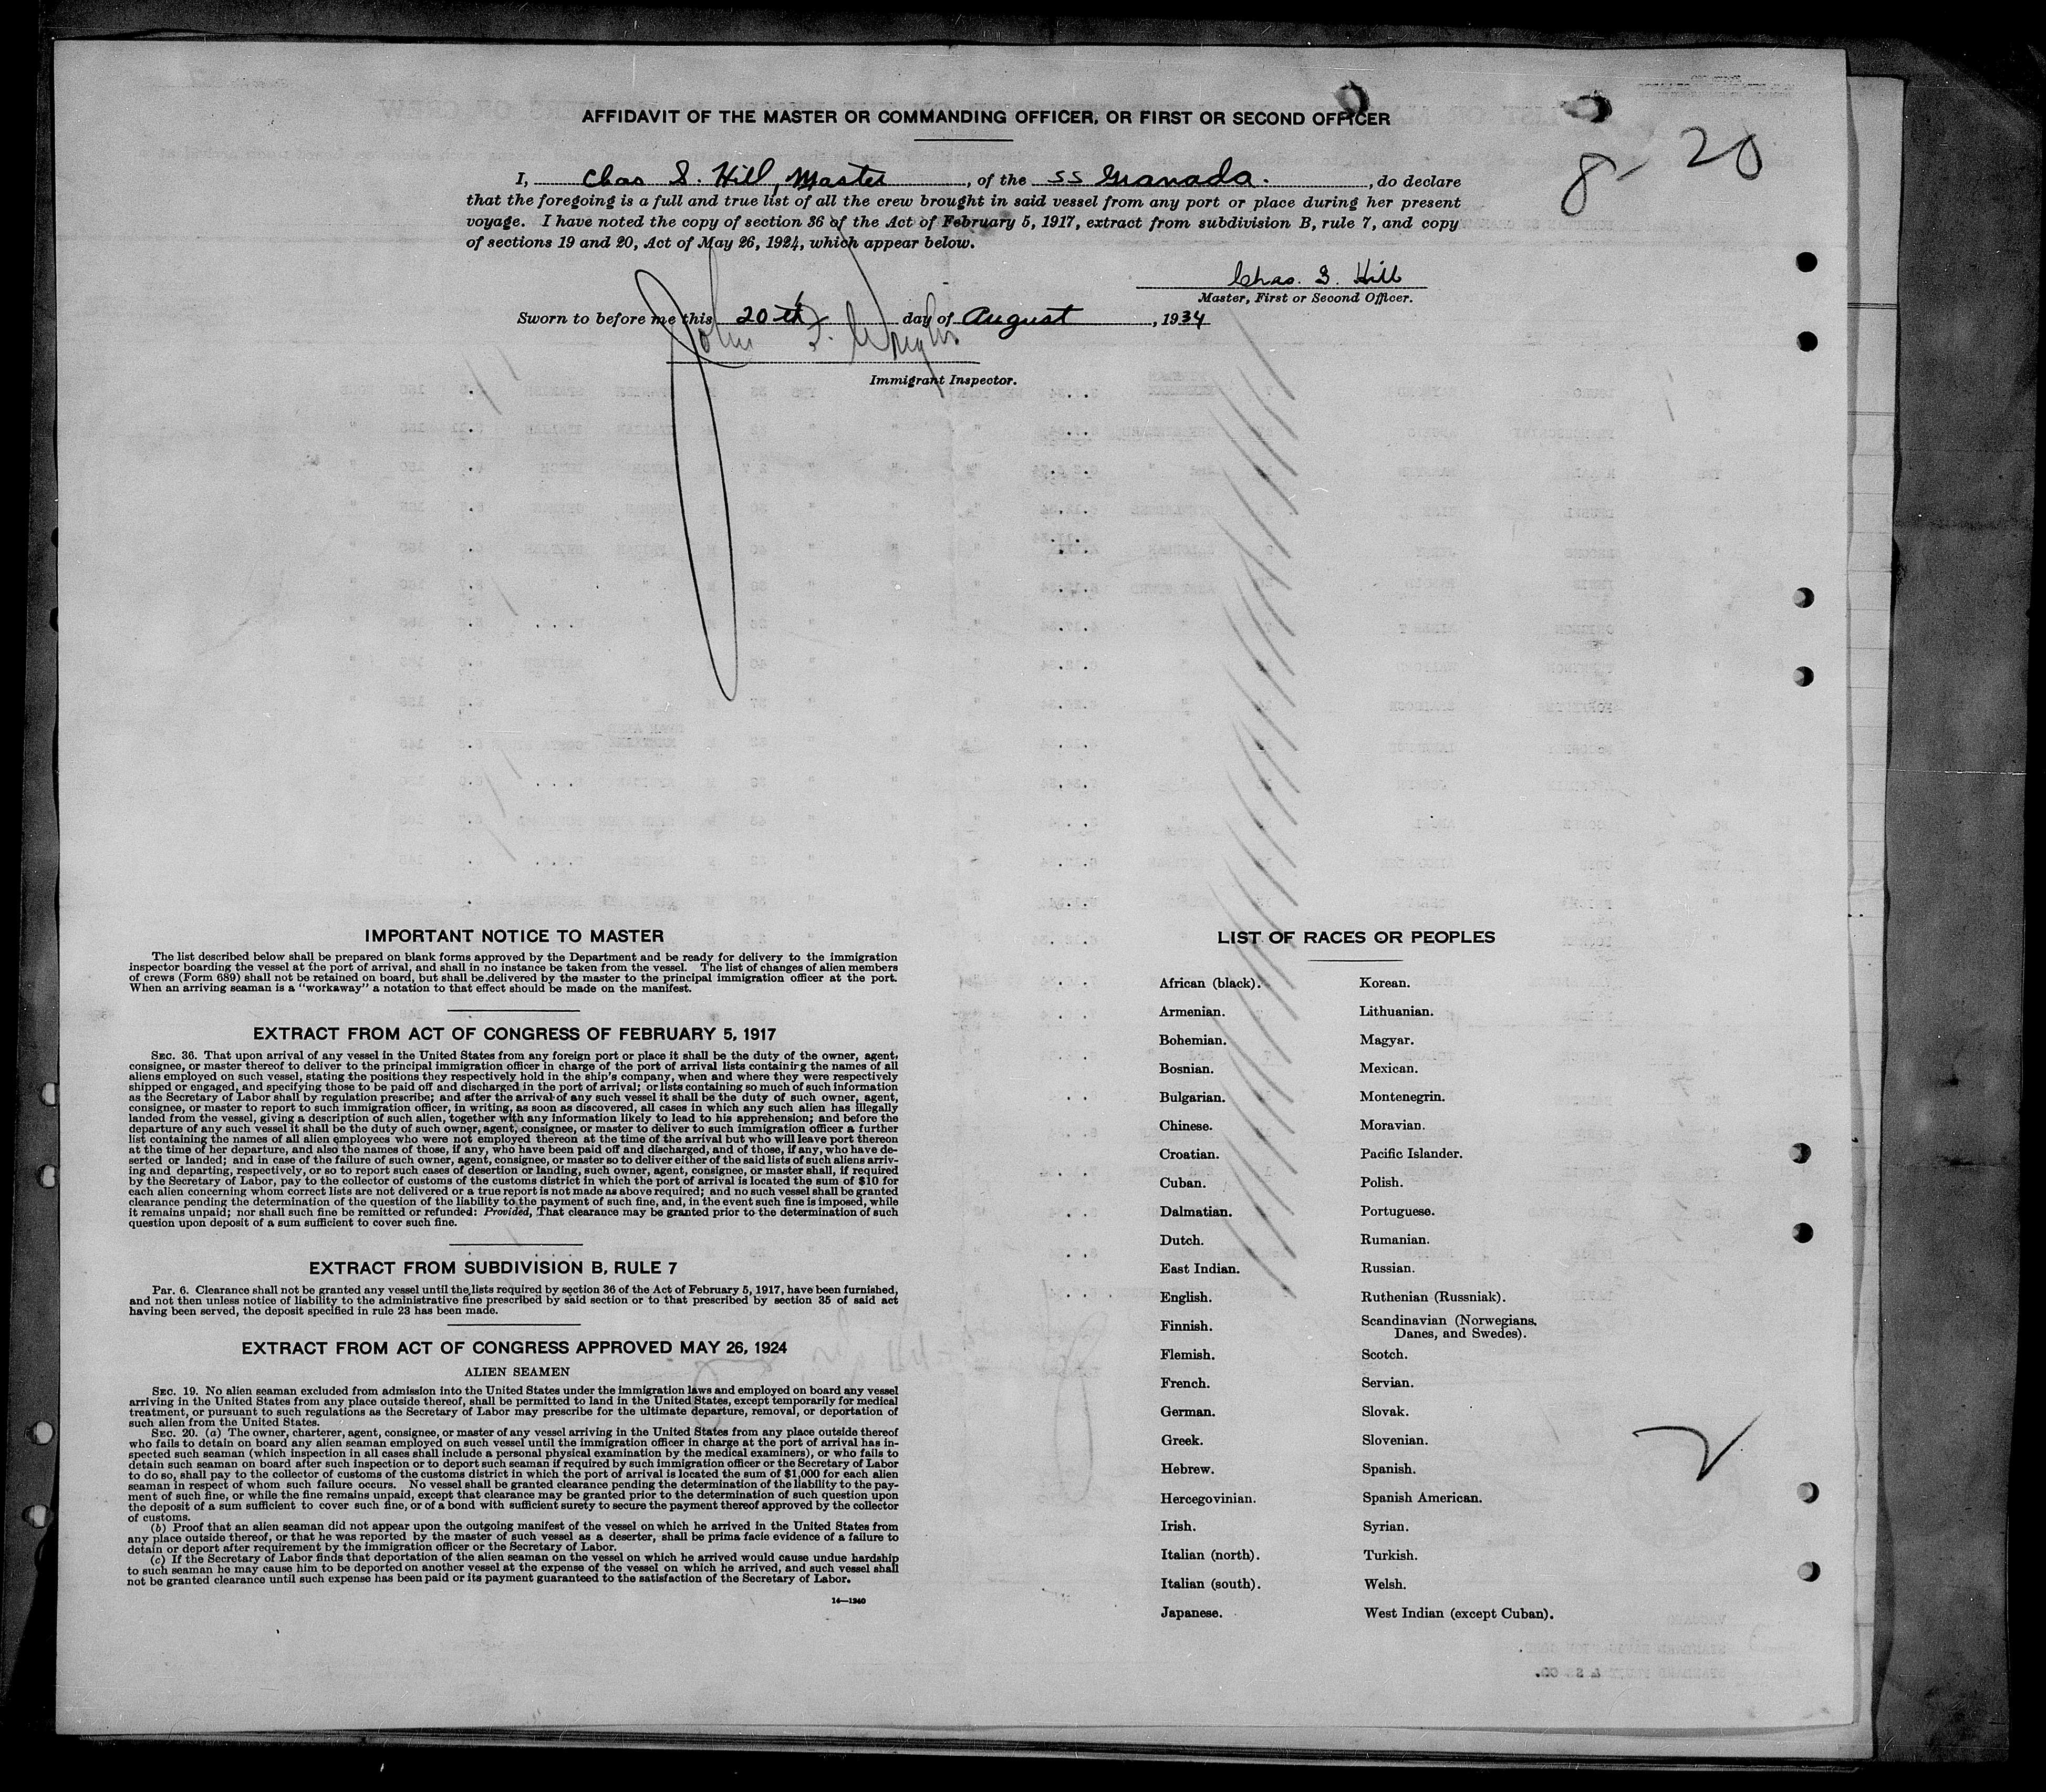 AFFIDAVIT OF THE MASTER OR COMMANDING OFFICER, OR FIRST OR SECOND OFFICER
8-20
I, Chas S. Hill, Master, of the SS Granada., do declare
that the foregoing is a full and true list of all the crew brought in said vessel from any port or place during her present
voyage. I have noted the copy of section 36 of the Act of February 5, 1917, extract from subdivision B, rule 7, and copy
of sections 19 and 20, Act of May 26, 1924, which appear below.
Chas. S. Hill
Master, First or Second Officer.
Sworn to before me this 20th day of August, 1934
John
Immigrant Inspector.
IMPORTANT NOTICE TO MASTER
The list described below shall be prepared on blank forms approved by the Department and be ready for delivery to the immigration
inspector boarding the vessel at the port of arrival, and shall in no instance be taken from the vessel. The list of changes of alien members
of crews (Form 689) shall not be retained on board, but shall be delivered by the master to the principal immigration officer at the port.
When an arriving seaman is a "workaway" a notation to that effect should be made on the manifest.
EXTRACT FROM ACT OF CONGRESS OF FEBRUARY 5, 1917
SEC. 36. That upon arrival of any vessel in the United States from any foreign port or place it shall be the duty of the owner, agent,
consignee, or master thereof to deliver to the principal immigration officer in charge of the port of arrival lists containing the names of all
aliens employed on such vessel, stating the positions they respectively hold in the ship's company, when and where they were respectively
shipped or engaged, and specifying those to be paid off and discharged in the port of arrival; or lists containing so much of such information
as the Secretary of Labor shall by regulation prescribe; and after the arrival of any such vessel it shall be the duty of such owner, agent,
consignee, or master to report to such immigration officer, in writing, as soon as discovered, all cases in which any such alien has illegally
landed from the vessel, giving a description of such alien, together with any information likely to lead to his apprehension; and before the
departure of any such vessel it shall be the duty of such owner, agent, consignee, or master to deliver to such immigration officer a further
list containing the names of all alien employees who were not employed thereon at the time of the arrival but who will leave port thereon
at the time of her departure, and also the names of those, if any, who have been paid off and discharged, and of those, if any, who have de-
serted or landed; and in case of the failure of such owner, agent, consignee, or master so to deliver either of the said lists of such aliens arriv-
ing and departing, respectively, or so to report such cases of desertion or landing, such owner, agent, consignee, or master shall, if required
by the Secretary of Labor, pay to the collector of customs of the customs district in which the port of arrival is located the sum of $10 for
each alien concerning whom correct lists are not delivered or a true report is not made as above required; and no such vessel shall be granted
clearance pending the determination of the question of the liability to the payment of such fine, and, in the event such fine is imposed, while
it remains unpaid; nor shall such fine be remitted or refunded: Provided, That clearance may be granted prior to the determination of such
question upon deposit of a sum sufficient to cover such fine.
EXTRACT FROM SUBDIVISION B, RULE 7
Par. 6. Clearance shall not be granted any vessel until the lists required by section 36 of the Act of February 5, 1917, have been furnished,
and not then unless notice of liability to the administrative fine prescribed by said section or to that prescribed by section 35 of said act
having been served, the deposit specified in rule 23 has been made.
EXTRACT FROM ACT OF CONGRESS APPROVED MAY 26, 1924
ALIEN SEAMEN
SEC. 19. No alien seaman excluded from admission into the United States under the immigration laws and employed on board any vessel
arriving in the United States from any place outside thereof, shall be permitted to land in the United States, except temporarily for medical
treatment, or pursuant to such regulations as the Secretary of Labor may prescribe for the ultimate departure, removal, or deportation of
such alien from the United States.
SEC. 20. (a) The owner, charterer, agent, consignee, or master of any vessel arriving in the United States from any place outside thereof
who fails to detain on board any alien seaman employed on such vessel until the immigration officer in charge at the port of arrival has in-
spected such seaman (which inspection in all cases shall include a personal physical examination by the medical examiners), or who fails to
detain such seaman on board after such inspection or to deport such seaman if required by such immigration officer or the Secretary of Labor
to do so, shall pay to the collector of customs of the customs district in which the port of arrival is located the sum of $1,000 for each alien
seaman in respect of whom such failure occurs. No vessel shall be granted clearance pending the determination of the liability to the pay-
ment of such fine, or while the fine remains unpaid, except that clearance may be granted prior to the determination of such question upon
the deposit of a sum sufficient to cover such fine, or of a bond with sufficient surety to secure the payment thereof approved by the collector
of customs.
(b) Proof that an alien seaman did not appear upon the outgoing manifest of the vessel on which he arrived in the United States from
any place outside thereof, or that he was reported by the master of such vessel as a deserter, shall be prima facie evidence of a failure to
detain or deport after requirement by the immigration officer or the Secretary of Labor.
(c) If the Secretary of Labor finds that deportation of the alien seaman on the vessel on which he arrived would cause undue hardship
to such seaman he may cause him to be deported on another vessel at the expense of the vessel on which he arrived, and such vessel shall
not be granted clearance until such expense has been paid or its payment guaranteed to the satisfaction of the Secretary of Labor.
14—1240
LIST OF RACES OR PEOPLES
African (black).
Armenian.
Bohemian.
Bosnian.
Bulgarian.
Chinese.
Croatian.
Cuban.
Dalmatian.
Dutch.
East Indian.
English.
Finnish.
Flemish.
French.
German.
Greek.
Hebrew.
Hercegovinian.
Irish.
Italian (north).
Italian (south).
Japanese.
Korean.
Lithuanian.
Magyar.
Mexican.
Montenegrin.
Moravian.
Pacific Islander.
Polish.
Portuguese.
Rumanian.
Russian.
Ruthenian (Russniak).
Scandinavian (Norwegians,
Danes, and Swedes).
Scotch.
Servian.
Slovak.
Slovenian.
Spanish.
Spanish American.
Syrian.
Turkish.
Welsh.
West Indian (except Cuban).